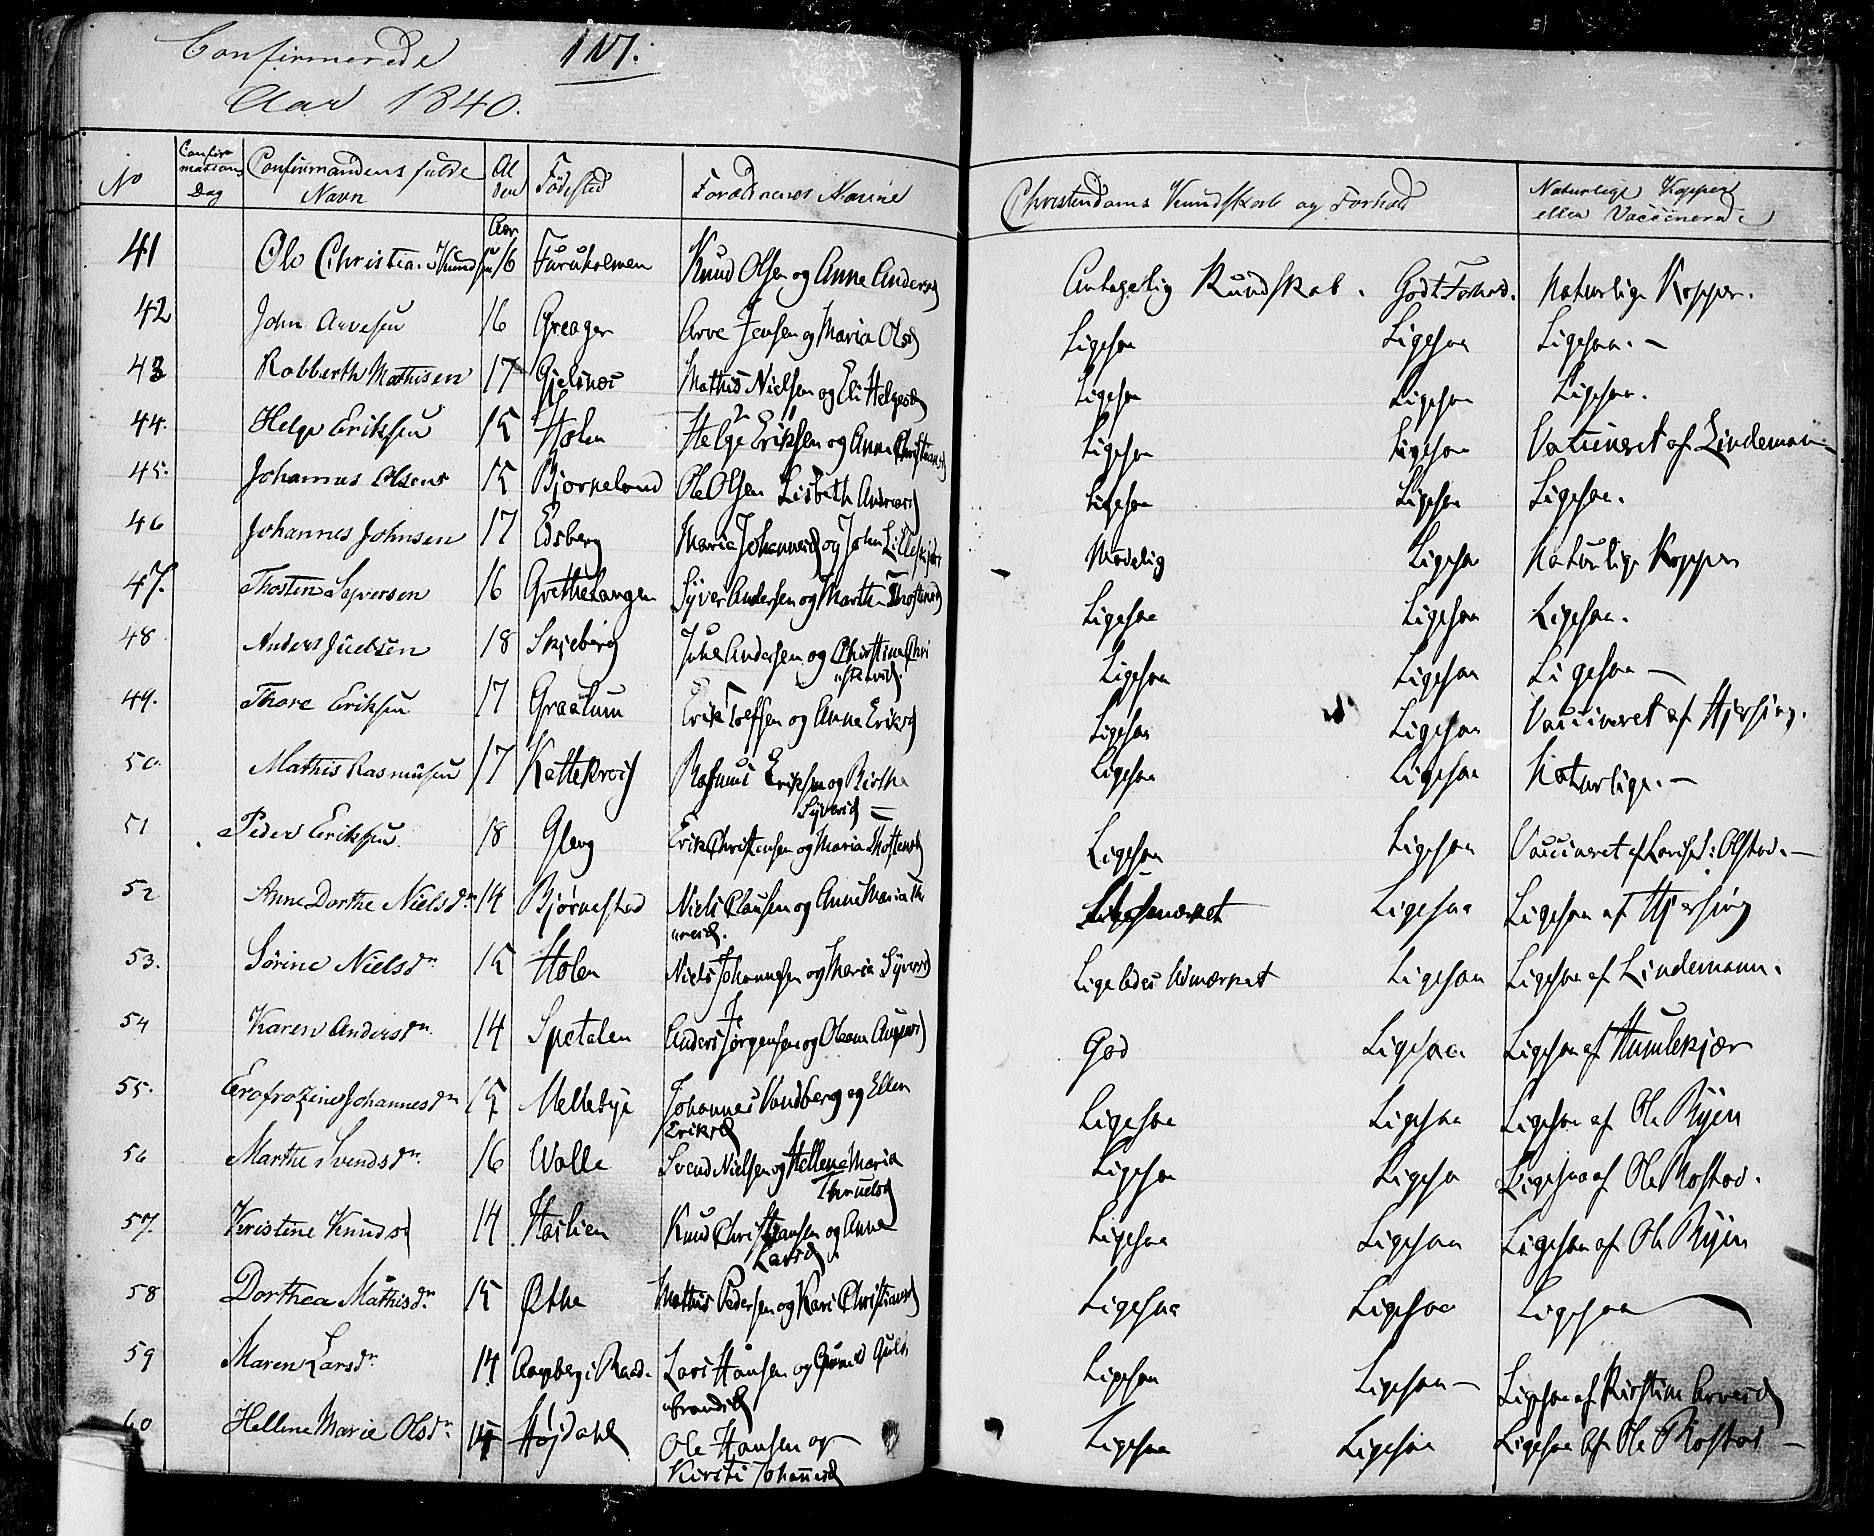 Confirmerede 117.
Aar 1840.
No Confirmations Dag Confirmandens fulde Navn Alder Fødested Forældrenes Navne Christendoms Kundskab og Forhold Naturlige Kopper eller Vaccinerede
Aar
41 Ole Christia. Knuds 16 Furuholmen Knud Olsen og Anne Andersd Antagelig Kundskab. Godt Forhold. Naturlige Kopper.
42 John Arvesen 16 Greager Arve Jensen og Maria Olsd Ligesaa Ligesaa Ligesaa. —
43 Robberth Mathisen 17 Gjelsnes Mathis Nielsen og Eli Helgesd Ligesaa Ligesaa Ligesaa.
44. Helge Eriksen 15 Holen Helge Eriksen og Anne Christiansd Ligesaa Ligesaa Vaccineret af Lindeman
45. Johannus Olsens 15 Bjørneland Ole Olsen Lisbeth Ligesaa Ligesaa Ligesaa.
46 Johannes Johnsen 17 Edsberg Maria Johannesd og John Maadelig Ligesaa Naturlige Kopper
47. Thosten Syversen 16 Grethelangen Syver Andersen og Marthe Thostensd Ligesaa Ligesaa Ligesaa.
48 Anders Juelsen 18 Skjeberg Juhl Andersen og Christine Chri Ligesaa Ligesaa Ligesaa —
stiansd.
49. Thore Eriksen 17 Graalum Erik Toefsen og Anne Eriksd Ligesaa Ligesaa Vaccineret af Hjersing.
50. Mathis Rasmusen 17 Kattekroish Rasmus Eriksen og Birthe Ligesaa Ligesaa Naturlige. —
Syversd —
51 Peder Eriksen 18 Gleng Erik Christensen og Maria Thostensd Ligesaa Ligesaa Vaccineret af Olstad. —
52 Anne Dorthe Nielsdr 14 Bjørnestad Niels Clausen og Anne Maria Th Ligesaa Ligesaa af Hjersing
oresd.
53. Sørine Nielsdr 15 Holen Niels Johannesen og Maria Syversd Ligeledes Udmærket Ligesaa Ligesaa af Lindemann.
54 Karen Andersdr. 14 Spetalen Anders Jørgensen og Oleam God Ligesaa Ligesaa af Humlekjær
55. Erafrozine Johannesdr 15 Mellebye Johannes Vandberg og Ellen Ligesaa Ligesaa Ligesaa af Ole Ryen
Eriksd
56 Marthe Svendsdr. 16 Walle Svend Nielsen og Hellene Maria Ligesaa Ligesaa Ligesaa af Ole Rostad.
Thruelsd
57. Kristine Knudsd 14 Haslien Knud Christiansen og Anne Ligesaa Ligesaa Ligesaa af Ole Ryen
Larsd.
58 Dorthea Mathisdr. 15 Øthe Mathis Pedersen og Kari Christiansd Ligesaa Ligesaa Ligesaa
59 Maren Larsdr 14 Aagberg i Raad. Lars Hansen og Gunild Gul Ligesaa Ligesaa — Ligesaa af Kirstine Arvesd
brandsd
60 Hellene Marie Olsdr 15 Højdahl Ole Hansen og Ligesaa Ligesaa Ligesaa af Ole Rostad —
Kirsti Johannesd